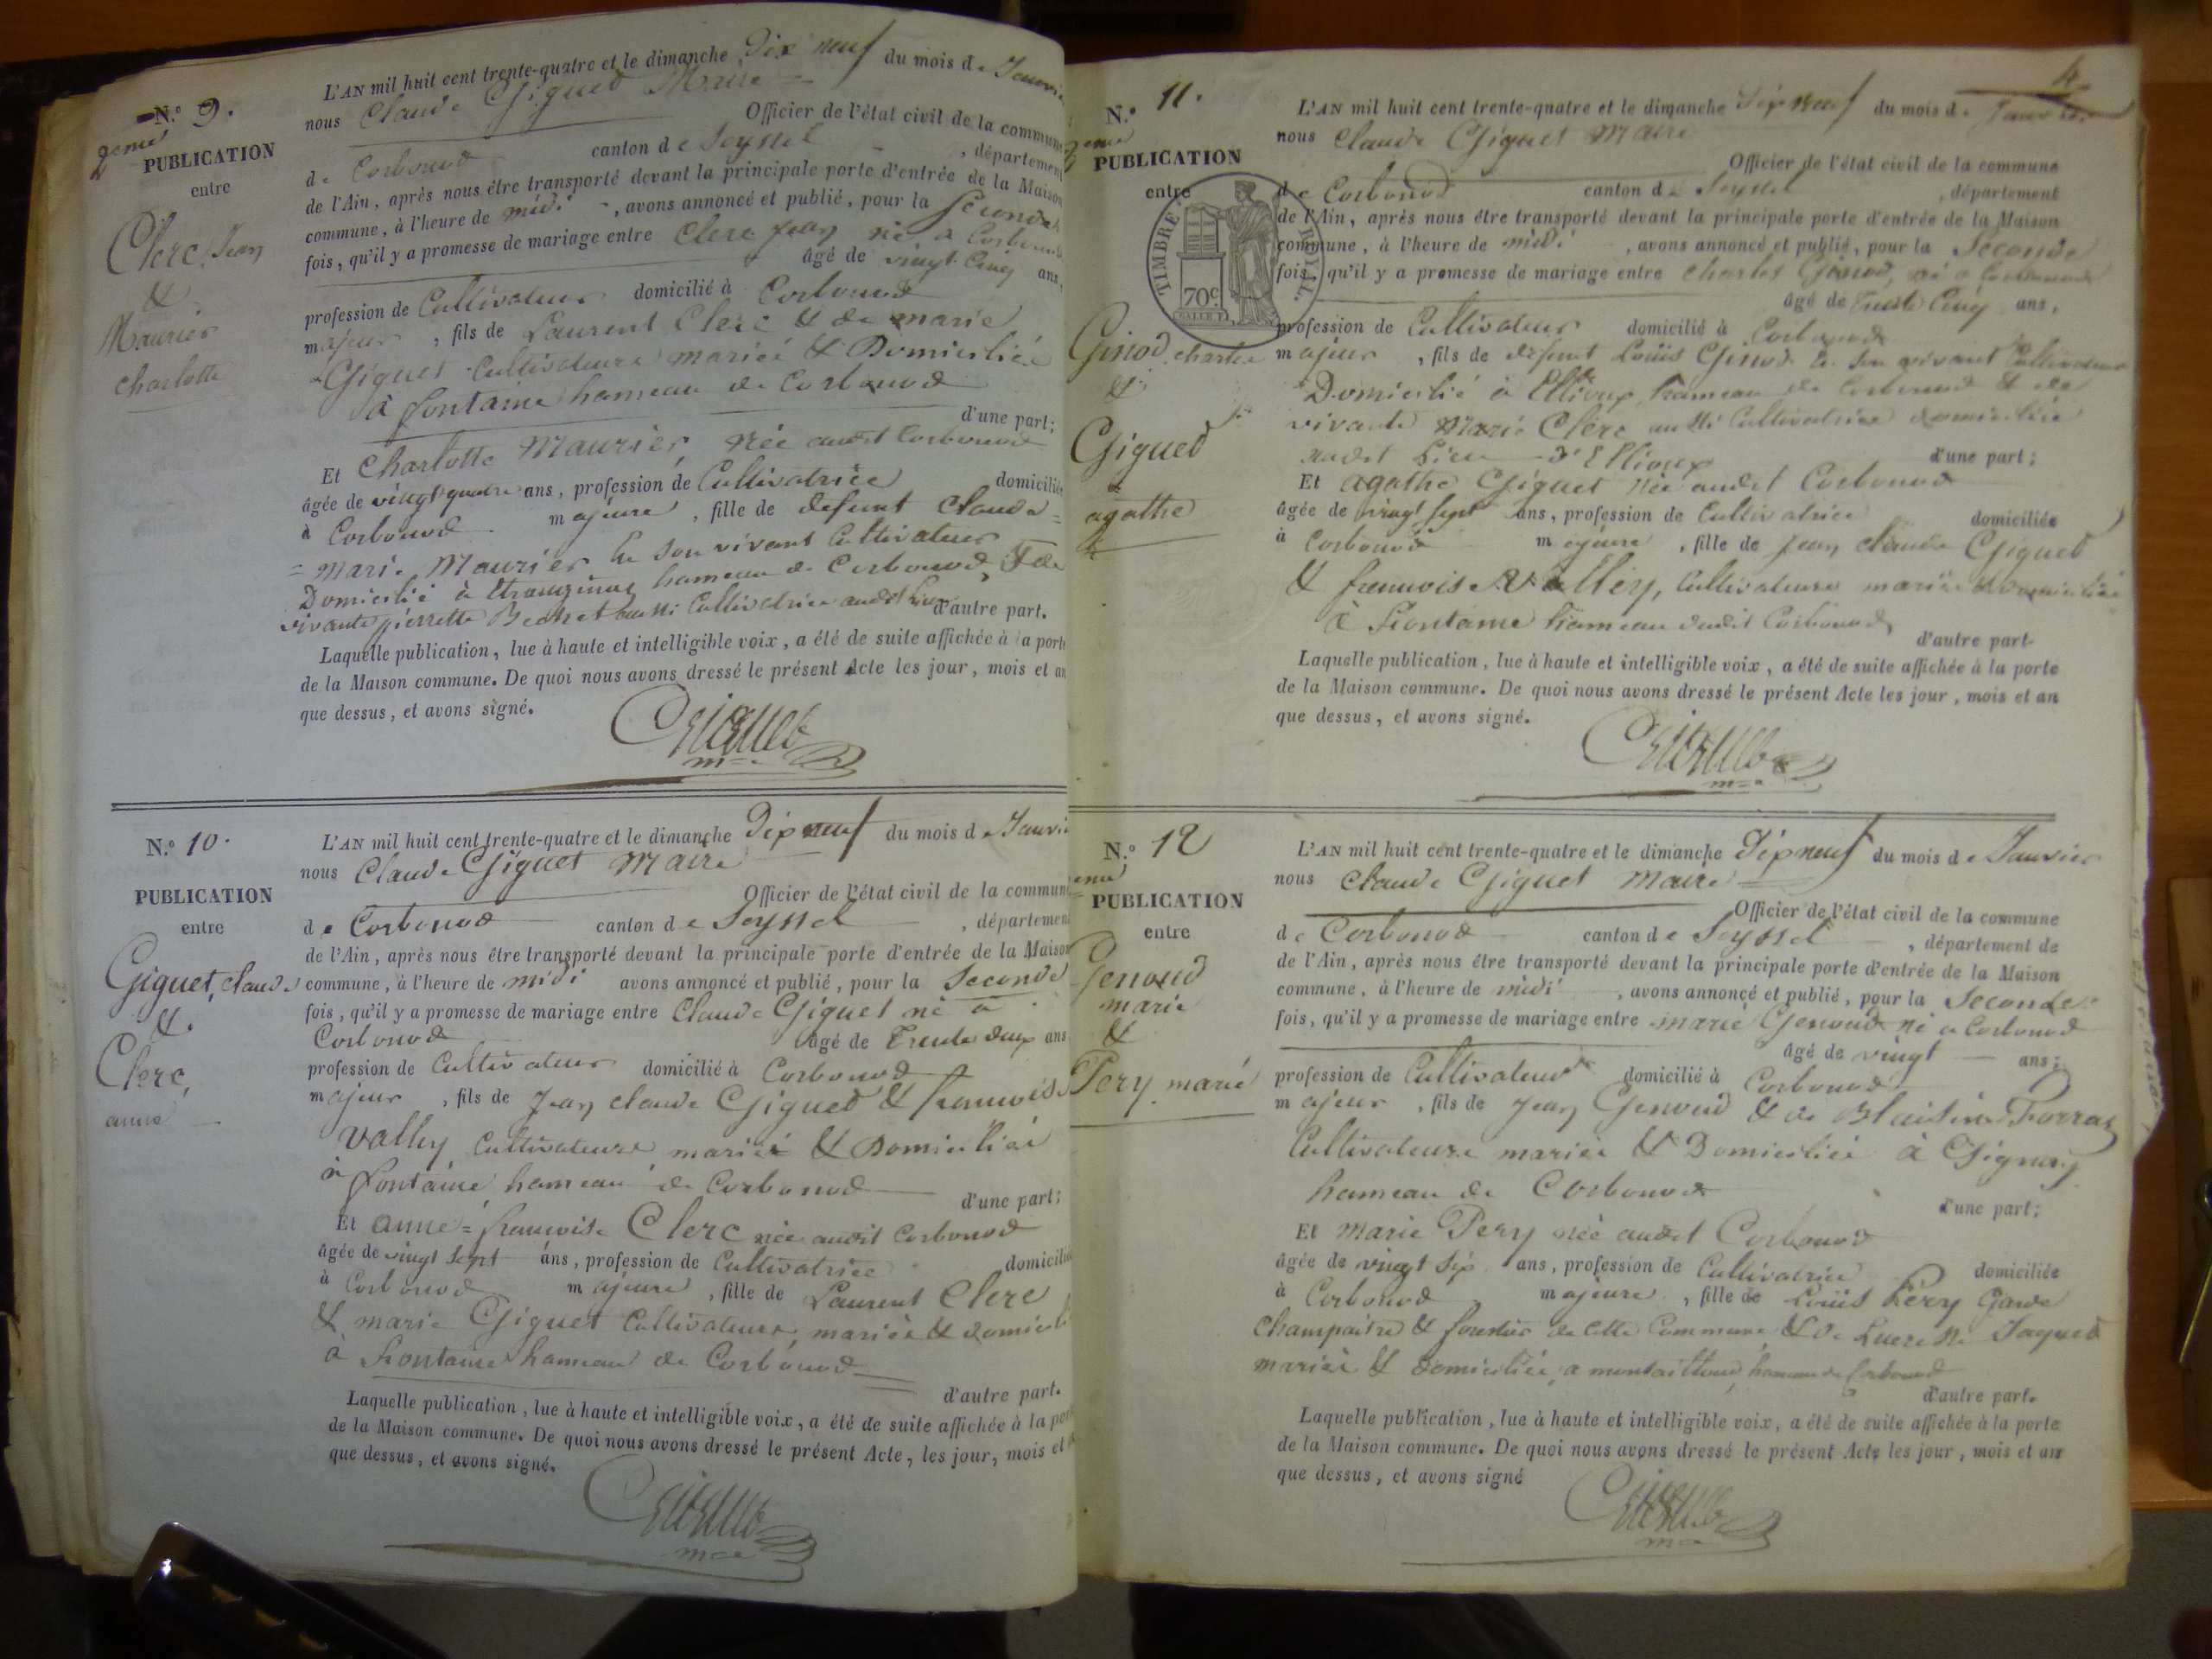 N.º 9.
2eme
PUBLICATION
entre
Clerc, Jean
&
Maurier
charlotte
L'AN mil huit cent trente-quatre et le dimanche Dix neuf du mois de Janvier
nous Claude Giguet Maire
Officier de l'état civil de la commune
de Corbonod canton de Seyssel , département
de l'Ain, après nous être transporté devant la principale porte d'entrée de la Maison
commune, à l'heure de midi , avons annoncé et publié, pour la Seconde
fois, qu'il y a promesse de mariage entre Clerc Jean né à Corbonod
âgé de vingt Cinq ans,
profession de Cultivateur domicilié à Corbonod
majeur , fils de Laurent Clerc & de marie
Giguet Cultivateurs mariés & Domiciliés
à fontaine hameau de Corbonod
d'une part;
Et Charlotte Maurier, née audit Corbonod
âgée de vingt quatre ans, profession de Cultivatrice domiciliée
à Corbonod majeure , fille de defunt Claude =
= marie Maurier En son vivant Cultivateur
Domicilié à hameau de Corbonod, & de
vivante pierrette Bechet aussi Cultivatrice audit lieu d'autre part.
Laquelle publication, lue à haute et intelligible voix, a été de suite affichée à la porte
de la Maison commune. De quoi nous avons dressé le présent Acte les jour, mois et an
que dessus, et avons signé.
Giguet
mre
N.º 10.
PUBLICATION
entre
Giguet, claude
&.
Clerc,
anne
L'AN mil huit cent trente-quatre et le dimanche Dix neuf du mois de Janvier
nous Claude Giguet Maire
Officier de l'état civil de la commune
de Corbonod canton de Seyssel , département
de l'Ain, après nous être transporté devant la principale porte d'entrée de la Maison
commune, à l'heure de midi avons annoncé et publié, pour la Seconde
fois, qu'il y a promesse de mariage entre Claude Giguet né à
Corbonod âgé de Trente deux ans
profession de Cultivateur domicilié à Corbonod
majeur , fils de Jean claude Giguet & francoise
Valley Cultivateurs mariés & Domiciliés
à fontaine hameau de Corbonod
d'une part;
Et anne = francoise Clerc née audit Corbonod
âgée de vingt sept ans, profession de Cultivatrice domiciliée
à Corbonod majeure , fille de Laurent Clerc
& marie Giguet Cultivateurs, mariés & domiciliés
à fontaine hameau de Corbonod
d'autre part.
Laquelle publication, lue à haute et intelligible voix, a été de suite affichée à la porte
de la Maison commune. De quoi nous avons dressé le présent Acte, les jour, mois et an
que dessus, et avons signé.
Giguet
mre
4
N.º 11.
eme
PUBLICATION
entre
TIMBRE ROYAL.
70c
Ginod, charles
&
Giguet
agathe
L'AN mil huit cent trente-quatre et le dimanche Dix neuf du mois de Janvier
nous Claude Giguet Maire
Officier de l'état civil de la commune
de Corbonod canton de Seyssel , département
de l'Ain, après nous être transporté devant la principale porte d'entrée de la Maison
commune, à l'heure de midi , avons annoncé et publié, pour la Seconde
fois, qu'il y a promesse de mariage entre Charles Ginod, né a Corbonod
âgé de Trente Cinq ans,
profession de Cultivateur domicilié à Corbonod
majeur , fils de defunt Louis Ginod En son vivant Cultivateur
Domicilié à Ellioux, hameau de Corbonod & de
vivante Marie Clerc aussi Cultivatrice domiciliée
audit Lieu d'Ellioux d'une part;
Et agathe Giguet née audit Corbonod
âgée de vingt sept ans, profession de Cultivatrice domiciliée
à Corbonod majeure , fille de Jean claude Giguet
& francoise Vallery, Cultivateurs mariés & domiciliés
à fontaine hameau dudit Corbonod
d'autre part
Laquelle publication, lue à haute et intelligible voix, a été de suite affichée à la porte
de la Maison commune. De quoi nous avons dressé le présent Acte les jour, mois et an
que dessus, et avons signé.
Giguet
mre
N.º 12
eme
PUBLICATION
entre
Genoud
marie
&
Pery marie
L'AN mil huit cent trente-quatre et le dimanche Dix neuf du mois de Janvier
nous Claude Giguet Maire
Officier de l'état civil de la commune
de Corbonod canton de Seyssel , département de
de l'Ain, après nous être transporté devant la principale porte d'entrée de la Maison
commune, à l'heure de midi , avons annoncé et publié, pour la Seconde
fois, qu'il y a promesse de mariage entre marie Genoud né a Corbonod
âgé de vingt ans;
profession de Cultivateur domicilié à Corbonod
majeur , fils de Jean Genoud & de Blaisine Forraz
Cultivateurs mariés & Domiciliés à Gignez
hameau de Corbonod
d'une part;
Et marie Pery née audit Corbonod
âgée de vingt six ans, profession de Cultivatrice domiciliée
à Corbonod majeure , fille de Louis Pery Garde
Champaitre & forestier de Cette Commune & de Jaquet
mariés & domiciliés, a hameau de Corbonod
d'autre part.
Laquelle publication, lue à haute et intelligible voix, a été de suite affichée à la porte
de la Maison commune. De quoi nous avons dressé le présent Acte les jour, mois et an
que dessus, et avons signé
Giguet
mre